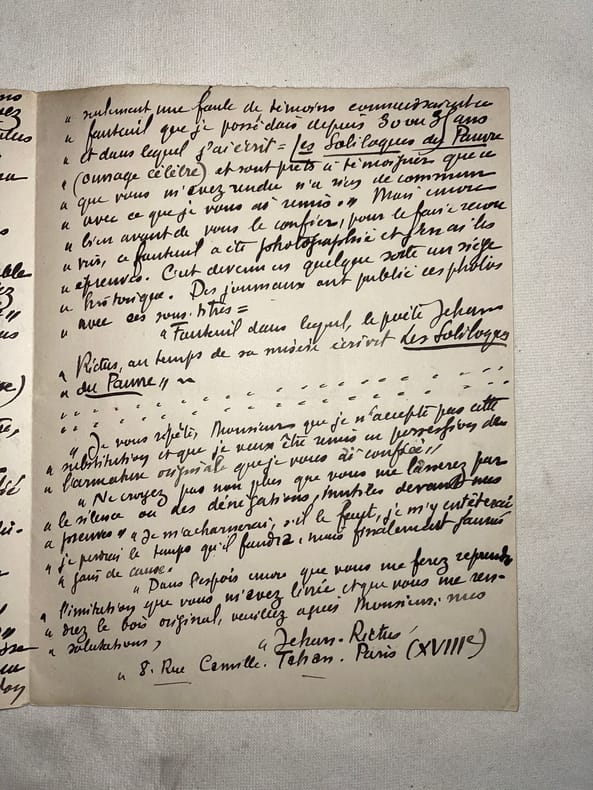 " seulement une foule de témoins connaissaient ce
" fauteuil que je possédais depuis 30 ou 35 ans
" et dans lequel j'ai écrit = Les Soliloques du Pauvre
" (ouvrage célèbre) et sont prêts à témoigner que ce
" que vous m'avez rendu n'a rien de commun
" avec ce que je vous ai remis. " Mais encore
" bien avant de vous le confier, pour le faire recou
" vrir, ce fauteuil a été photographié et j'en ai les
" épreuves. C'est devenu en quelque sorte un siège
" historique. Des journaux ont publié ces photos
" avec ces sous-titres =
" Fauteuil dans lequel, le poète Jehan
" Rictus, au temps de sa misère écrivit Les Soliloques
" du Pauvre " ~
" Je vous répète, Monsieur que je n'accepte pas cette
" substitution et que je veux être remis en possession de
" l'armature originale que je vous ai confiée "
" Ne croyez pas non plus que vous me lasserez par
" le silence ou des dénégations, inutiles devant mes
" preuves " Je m'acharnerai, s'il le faut, je m'y entêterai
" je perdrai le temps qu'il faudra, mais finalement j'aurai
" gain de cause.
" Dans l'espoir encore que vous me ferez reprendre
" l'imitation que vous m'avez livrée et que vous me ren-
" drez le bois original, veuillez agréer Monsieur, mes
" salutations,
" Jehan-Rictus
" 8. Rue Camille-Tahan. Paris (XVIIIe)